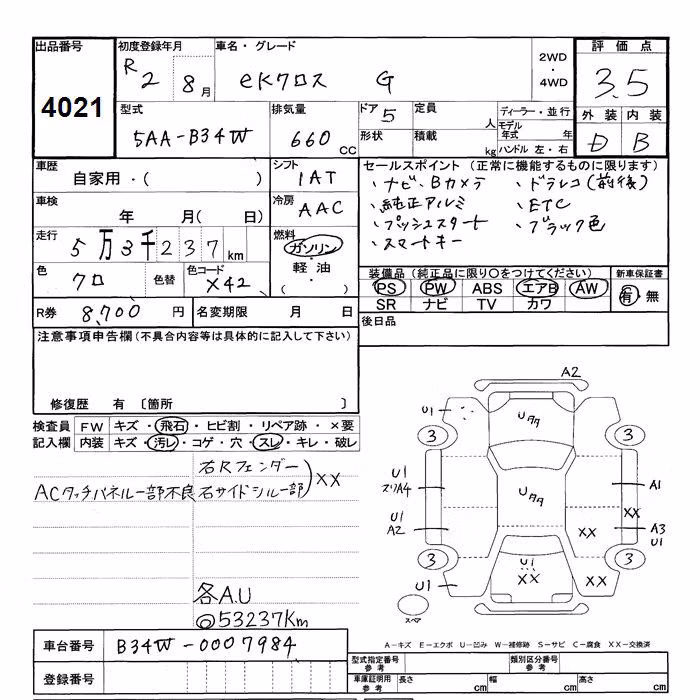 出品番号
4021
初度登録年月
R 2 8 月
車名・グレード
eKクロス G
2WD
・
4WD
評価点
3.5
外装 内装
D B
型式
5AA-B34W
排気量
660 CC
ドア 5
形状
定員
人
積載
kg
ディーラー・並行
モデル
年式 年
ハンドル 左・右
車歴
自家用・( )
シフト
1AT
車検
年 月( 日)
冷房
AAC
走行
5万3千237 km
燃料
ガソリン
・
軽油
・
( )
色
クロ
色替
色コード
X42
R券 8,700 円
名変期限 月 日
セールスポイント (正常に機能するものに限ります)
・ナビ、Bカメラ
・純正アルミ
・プッシュスタート
・スマートキー
・ドラレコ(前後)
・ETC
・ブラック色
装備品(純正品に限り〇をつけてください)
PS PW ABS エアB AW
SR ナビ TV カワ
新車保証書
有・無
後日品
注意事項申告欄(不具合内容等は具体的に記入して下さい)
修復歴 有 〔箇所 〕
検査員
記入欄
FW キズ・飛石・ヒビ割・リペア跡・×要
内装 キズ・汚レ・コゲ・穴・スレ・キレ・破レ
ACタッチパネル一部不良
右Rフェンダー
右サイドシル一部
)XX
各A.U
◎53237Km
A2
U1
Uタタ
3
3
U1
スリA4
Uタタ
A1
U1
A2
XX
XX
A3
U1
3
U1
XX
XX
3
U1
スペア
A-キズ E-エクボ U-凹み W-補修跡 S-サビ C-腐食 XX-交換済
車台番号
B34W-0007984
登録番号
型式指定番号
参考
類別区分番号
参考
車庫証明用
参考
長さ cm
幅 cm
高さ cm